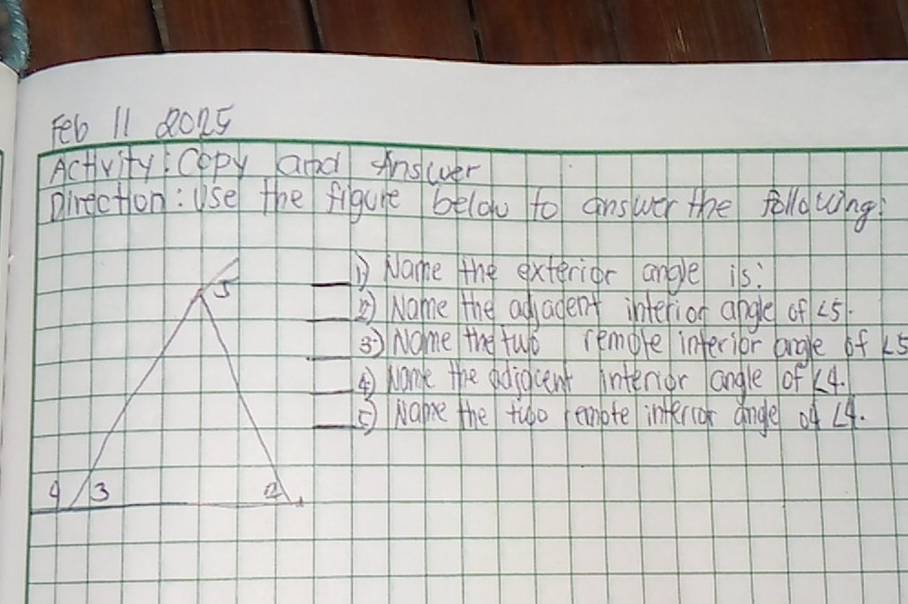 Feb 11 2025
Activity: Copy and Answer
Direction: Use the figure below to answer the following:
5
1) Name the exterior angle is:
2) Name the adjacent interior angle of ∠5.
3) Name the two remote interior angle of ∠5
4) Name the adjacent interior angle of ∠4.
5) Name the two remote interior angle of ∠4.
4 3 2